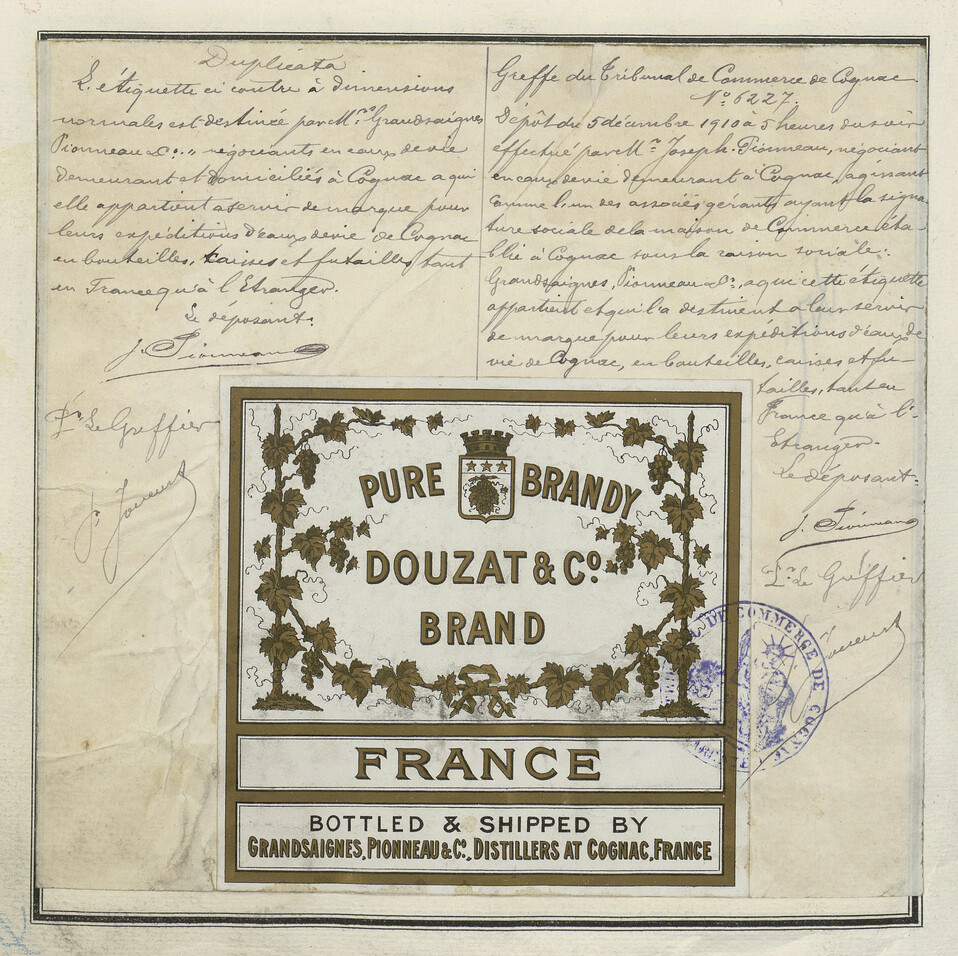 Duplicata
L'étiquette ci contre à dimensions
normales est destinée par Mrs Grandsaignes
Pionneau & Co. " négociants en eaux de vie
demeurant et domiciliés à Cognac a qui
elle appartient a servir de marque pour
leurs expéditions d'eaux de vie de Cognac
en bouteilles, caisses et futailles, tant
en France qu'à l'Etranger.
Le déposant:
J. Pionneau
Pr Le Greffier
Greffe du Tribunal de Commerce de Cognac
No 6227.
Dépôt du 5 décembre 1910 a 5 heures du soir
effectué par Mr Joseph Pionneau, négociant
en eaux de vie demeurant à Cognac, agissant
comme l'un des associés gérants ayant la signa-
ture sociale de la maison de Commerce éta-
blie à Cognac sous la raison sociale:
Grandsaignes, Pionneau & Co., a qui cette étiquette
appartient et qui l'a destinent a leur servir
de marque pour leurs expéditions d'eaux de
vie de Cognac, en bouteilles, caisses et fu-
tailles, tant en
France qu'à l'-
Etranger.
Le déposant:
J. Pionneau
Pr Le Greffier
PURE BRANDY
DOUZAT & Co.
BRAND
FRANCE
BOTTLED & SHIPPED BY
GRANDSAIGNES, PIONNEAU & Co., DISTILLERS AT COGNAC, FRANCE
DE COMMERCE DE COGNAC